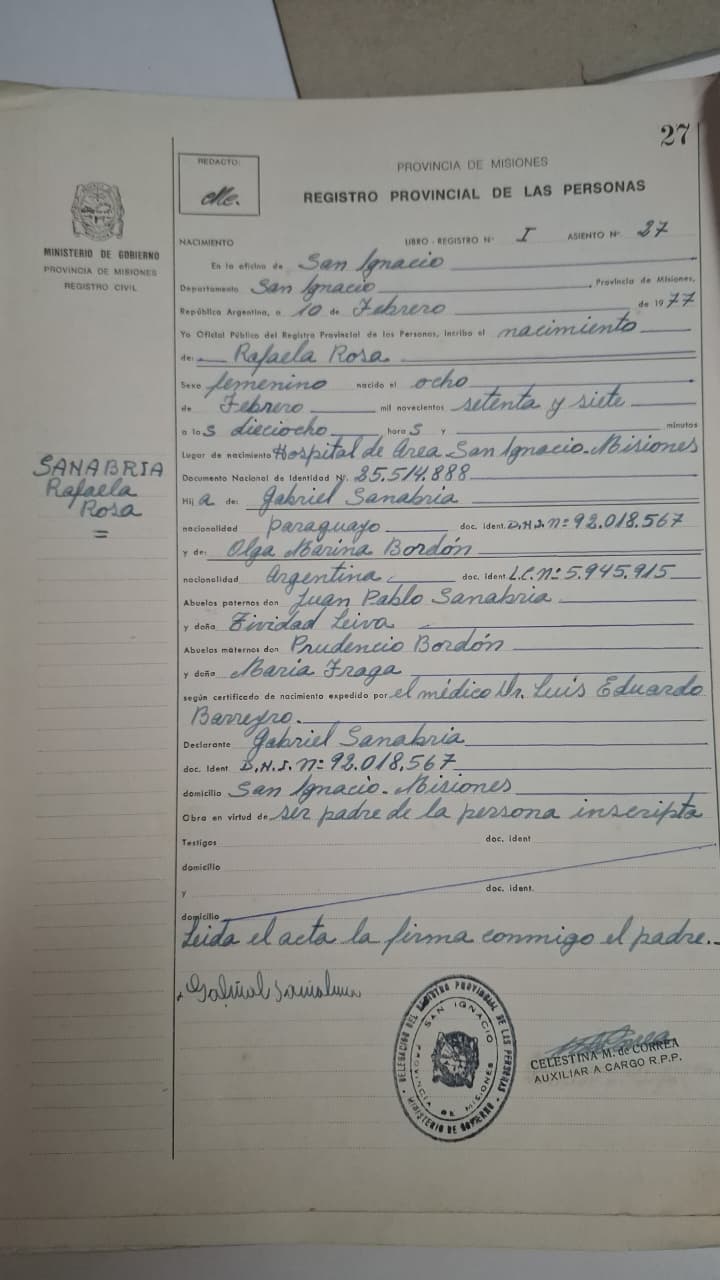 27
REDACTO:
PROVINCIA DE MISIONES
REGISTRO PROVINCIAL DE LAS PERSONAS
MINISTERIO DE GOBIERNO
PROVINCIA DE MISIONES
REGISTRO CIVIL
NACIMIENTO LIBRO - REGISTRO Nº I ASIENTO Nº 27
En la oficina de San Ignacio
Departamento San Ignacio, Provincia de Misiones,
República Argentina, a 10 de Febrero de 1977
Yo Oficial Público del Registro Provincial de las Personas, inscribo el nacimiento
de: Rafaela Rosa
Sexo femenino nacido el ocho
de Febrero mil novecientos setenta y siete
a las dieciocho horas y minutos
Lugar de nacimiento Hospital de Area San Ignacio-Misiones
SANABRIA
Rafaela
Rosa
=
Documento Nacional de Identidad Nº. 25.514.888
Hija de: Gabriel Sanabria
nacionalidad paraguayo doc. ident. D.N.I. nº 92.018.567
y de: Olga Marina Bordón
nacionalidad Argentina doc. ident. L.C. nº 5.945.915
Abuelos paternos don Juan Pablo Sanabria
y doña Leiva
Abuelos maternos don Prudencio Bordón
y doña María Fraga
según certificado de nacimiento expedido por el médico Dr. Luis Eduardo
Barreyro.
Declarante Gabriel Sanabria
doc. Ident D.N.I. nº 92.018.567
domicilio San Ignacio - Misiones
Obra en virtud de ser padre de la persona inscripta
Testigos doc. ident
domicilio
y doc. ident.
domicilio
Leida el acta la firma conmigo el padre.-
DELEGACION DEL REGISTRO PROVINCIAL DE LAS PERSONAS
SAN IGNACIO
PROVINCIA DE MISIONES
MINISTERIO DE GOBIERNO
CELESTINA M. de CORREA
AUXILIAR A CARGO R.P.P.